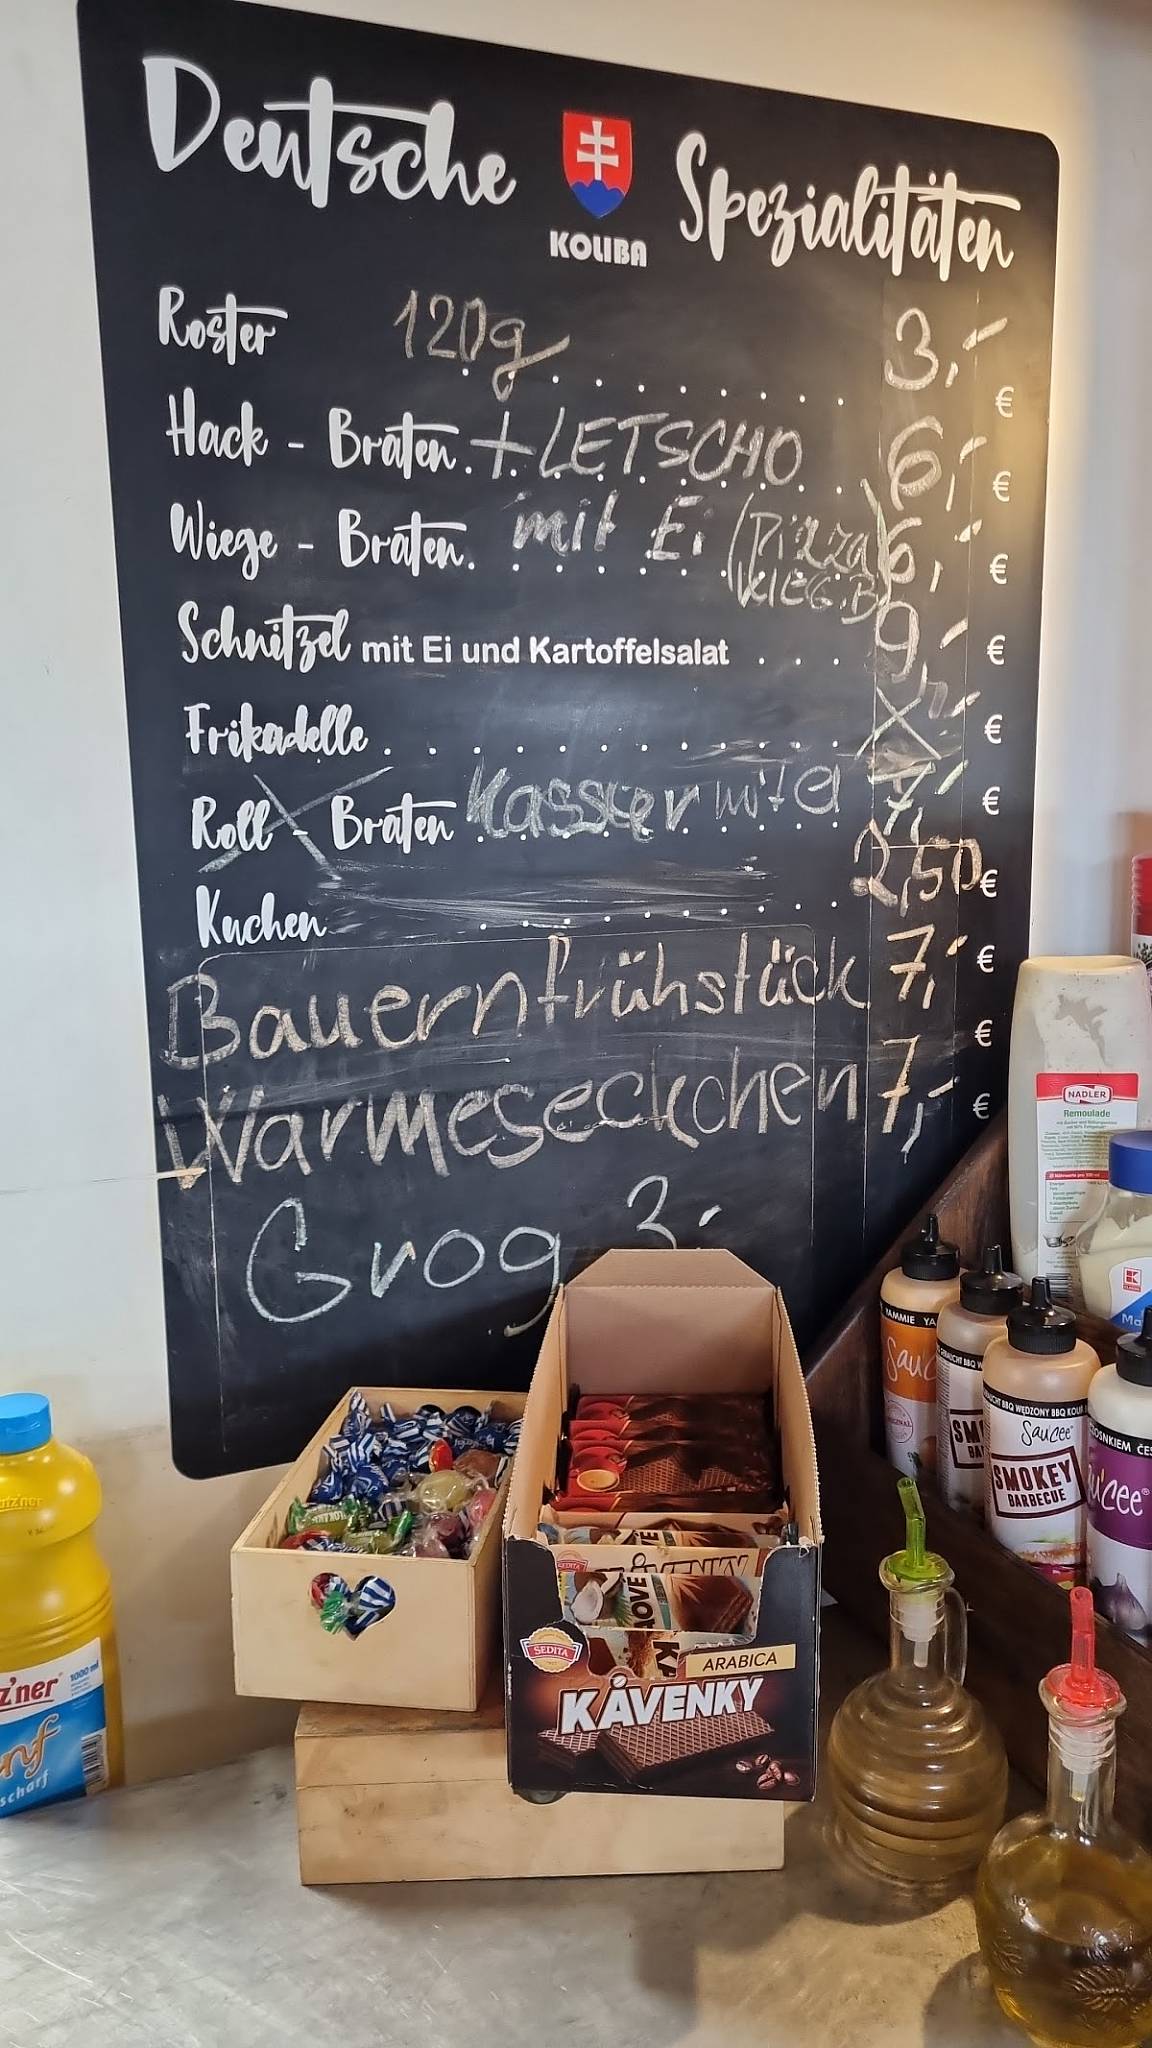 Deutsche Spezialitäten
KOLIBA
Roster 120g 3,- €
Hack - Braten + LETSCHO 6,- €
Wiege - Braten mit Ei (Pizza 6,- €
WIEG.B)
Schnitzel mit Ei und Kartoffelsalat 9,- €
Frikadelle €
Roll - Braten Kassler mit 7,- €
Kuchen 2,50 €
Bauernfrühstück 7,- €
Warmeseckchen 7,- €
€
Grog 3,-
NADLER
Remoulade
YAMMIE
Saucee
SMOKEY
BARBECUE
SEDITA
KÁVENKY
ARABICA
SEDITA
KÁVENKY
1000 ml
z'ner
scharf